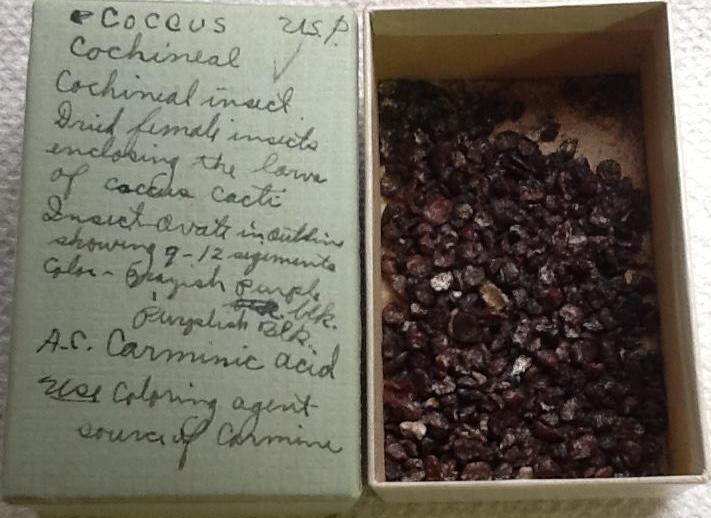 Coccus U.S.P.
Cochineal
Cochineal insect
Dried female insects
enclosing the larva
of coccus cacti
Insect ovate in outline
showing 9-12 segments
Color - Grayish purple
blk.
Purplish Blk.
A.C. Carminic acid
Use Coloring agent
source of Carmine